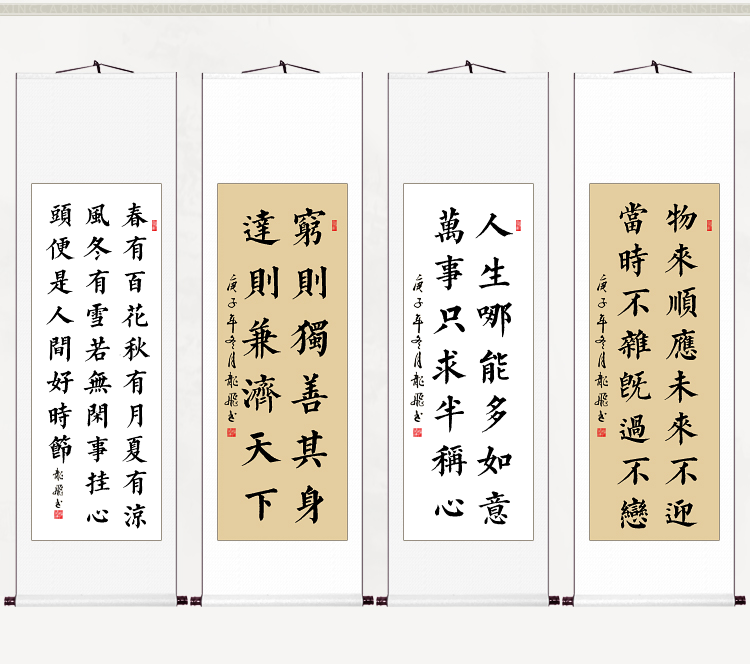 春有百花秋有月夏有涼
風冬有雪若無閑事挂心
頭便是人間好時節
龍飛书
窮則獨善其身
達則兼濟天下
庚子年冬月龍飛书
人生哪能多如意
萬事只求半稱心
庚子年冬月龍飛书
物來順應未來不迎
當時不雜既過不戀
庚子年冬月龍飛书